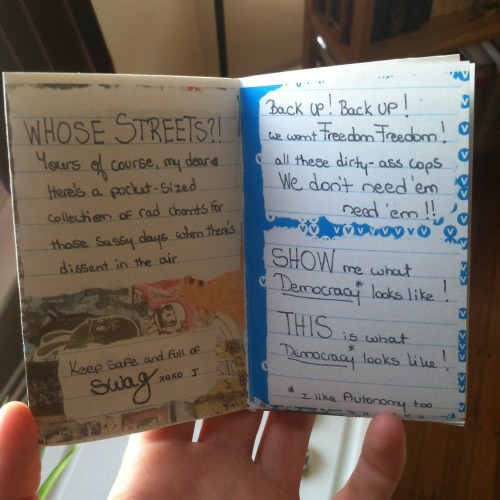 WHOSE STREETS?!
Yours of course, my dear
Here's a pocket-sized
collection of rad chants for
those sassy days when there's
dissent in the air
Keep Safe and full of
SWag xoxo I
Back up! Back up!
we want Freedom Freedom!
all these dirty-ass cops
We don't need 'em
need 'em!!
SHOW me what
Democracy* looks like!
THIS is what
Democracy* looks like!
* I like Autonomy too